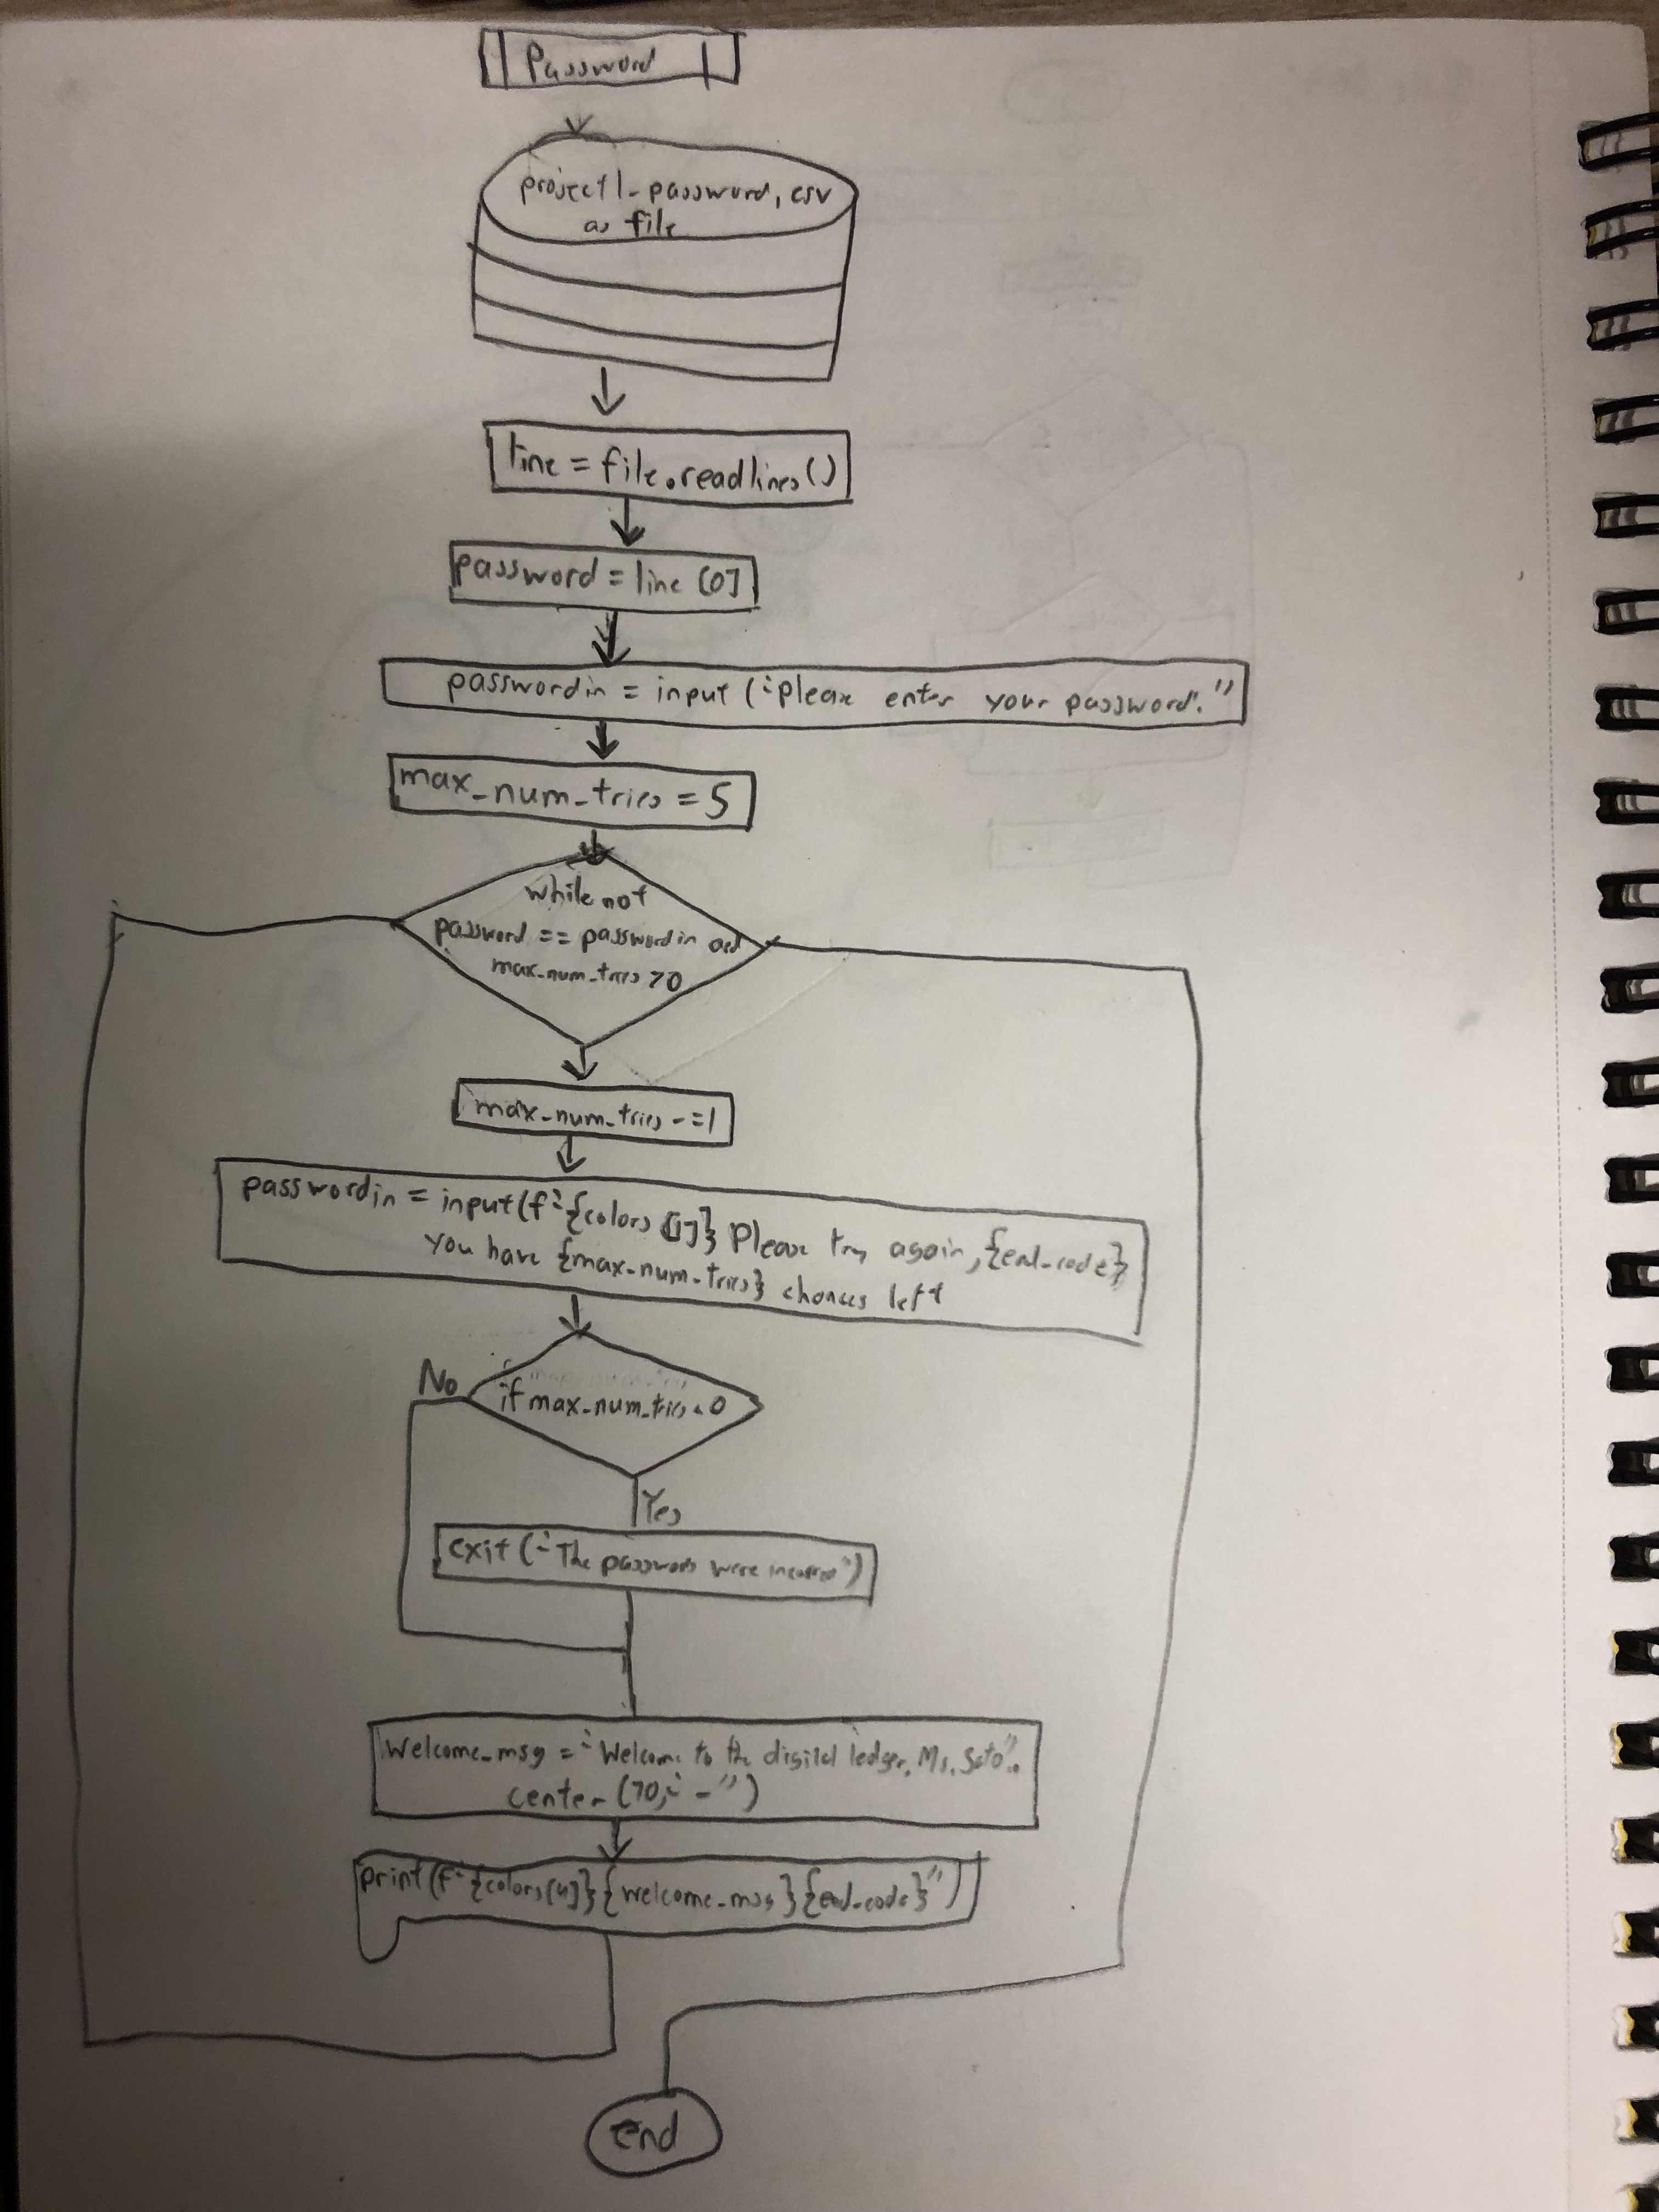 Password
project1-password.csv
as file
line = file.readlines()
password = line [0]
passwordin = input ("please enter your password:"
max_num_tries = 5
while not
password == passwordin and
max_num_tries > 0
max_num_tries -=1
passwordin = input(f"{colors[1]} Please try again, {end_code}
you have {max_num_tries} chances left
No
if max_num_tries < 0
Yes
exit ("The passwords were incorrect")
Welcome_msg = "Welcome to the digital ledger, Ms. Sato".
center (70, "-")
print(f"{colors[4]}{welcome_msg}{end_code}")
end